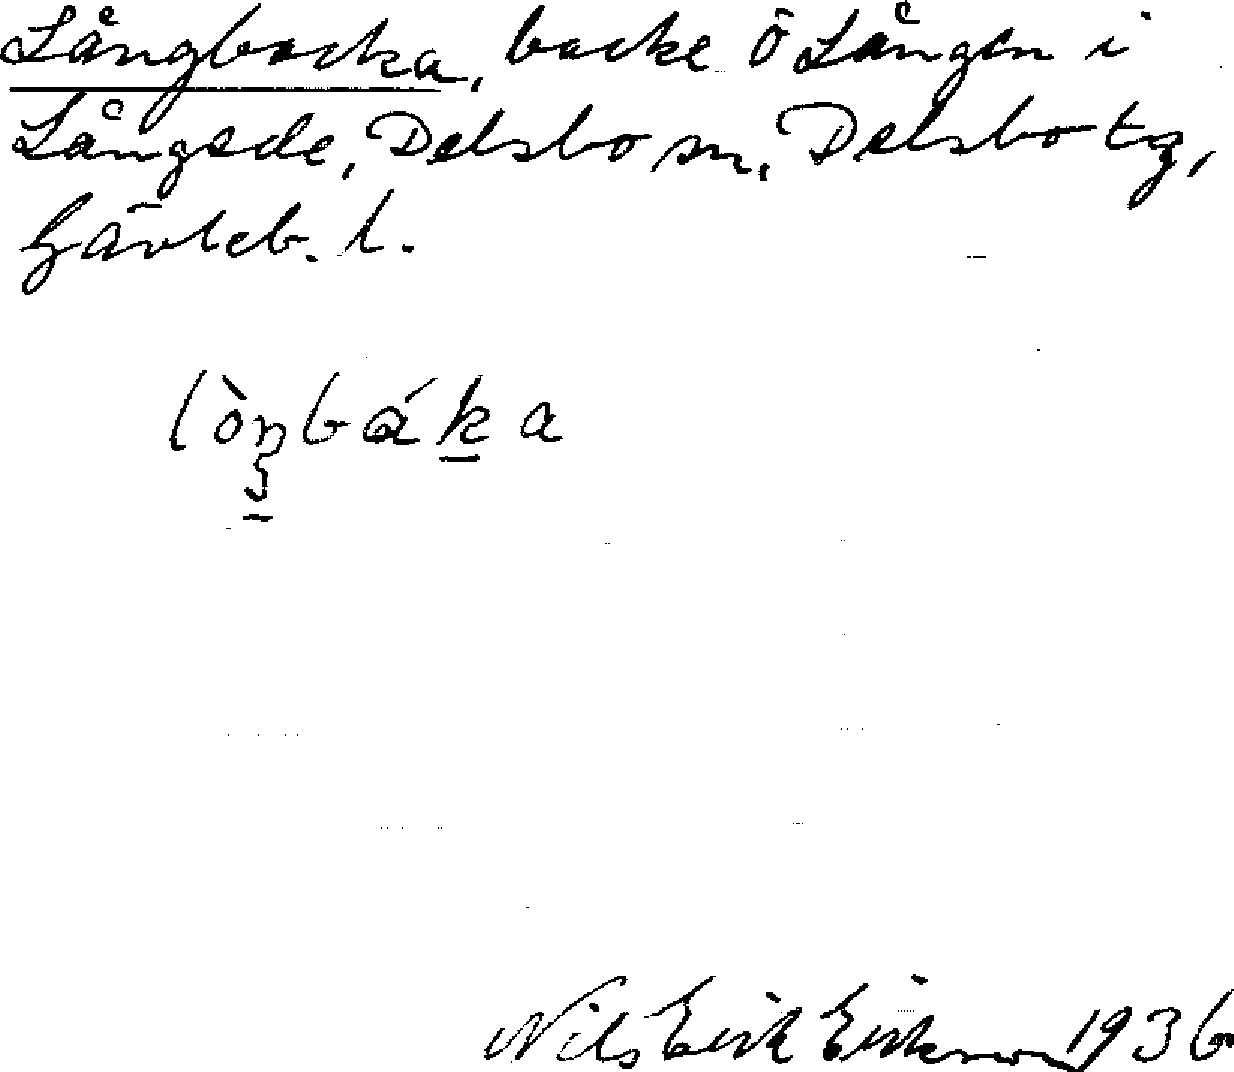 Långbacka, backe Ö Lången i
Långede, Delsbo sn, Delsbo tg,
Gävleb. l.
lòŋbáka
Nils Erik Erikson 1936